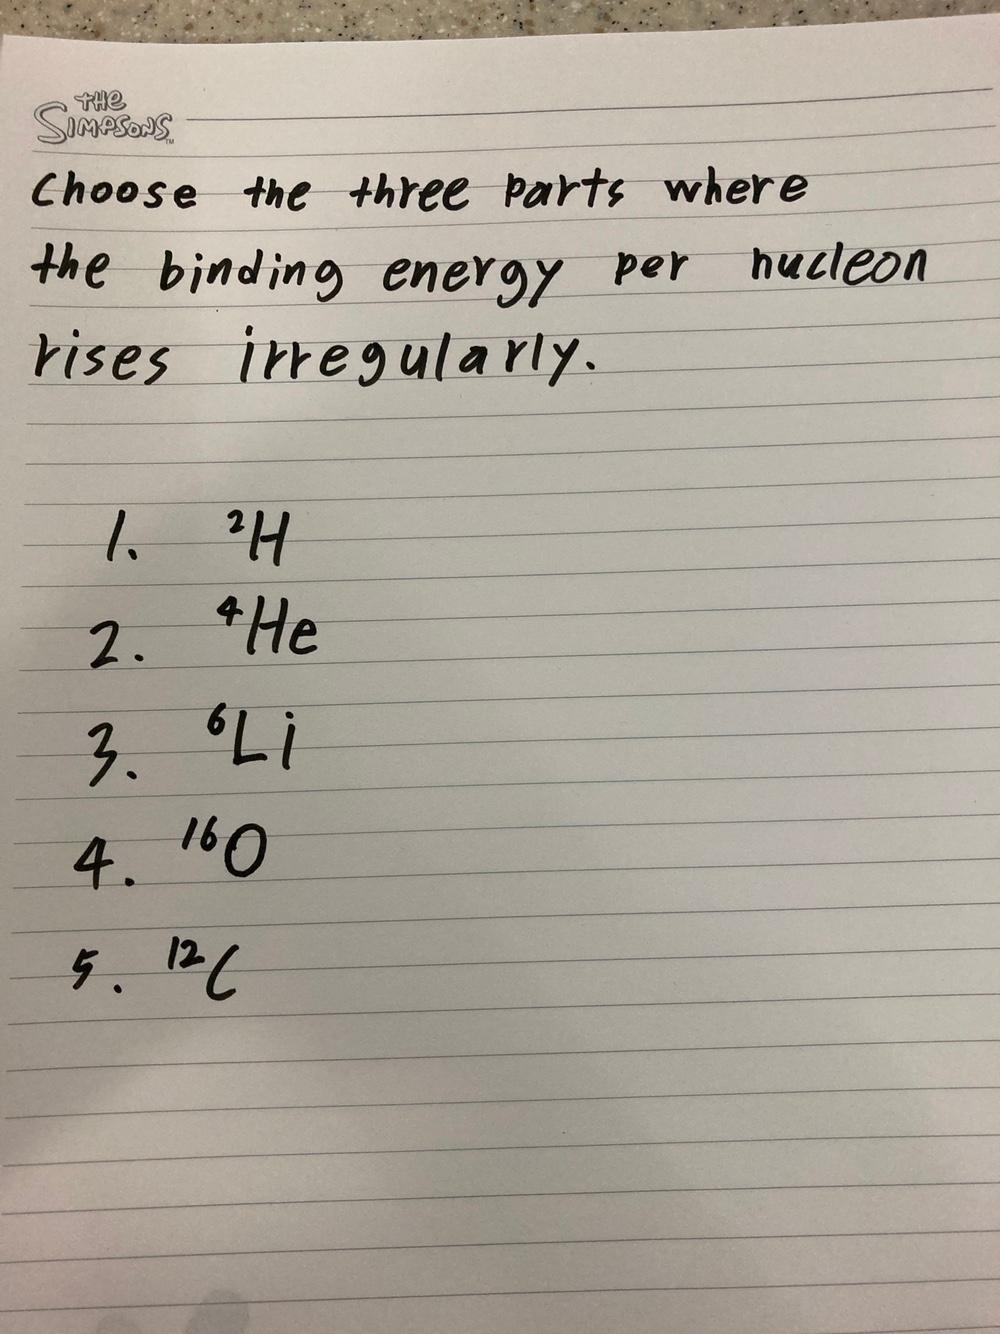 THE
SIMPSONS TM
Choose the three parts where
the binding energy per nucleon
rises irregularly.
1. ²H
2. ⁴He
3. ⁶Li
4. ¹⁶O
5. ¹²C